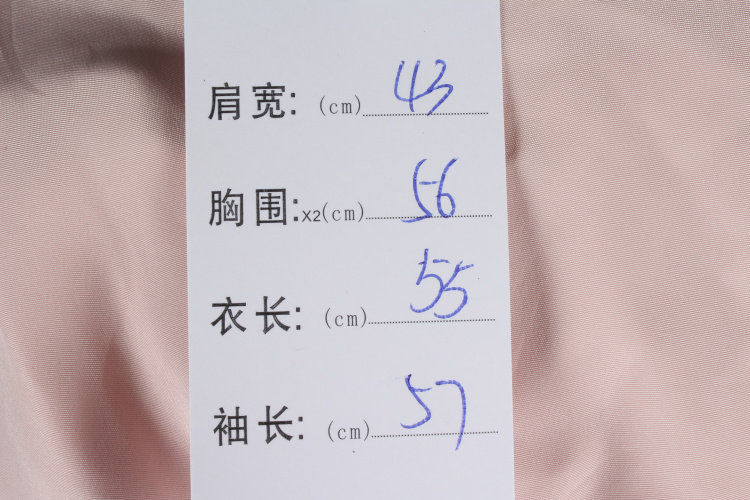 肩宽: (cm) 43
胸围:x2(cm) 56
衣长: (cm) 55
袖长: (cm) 57